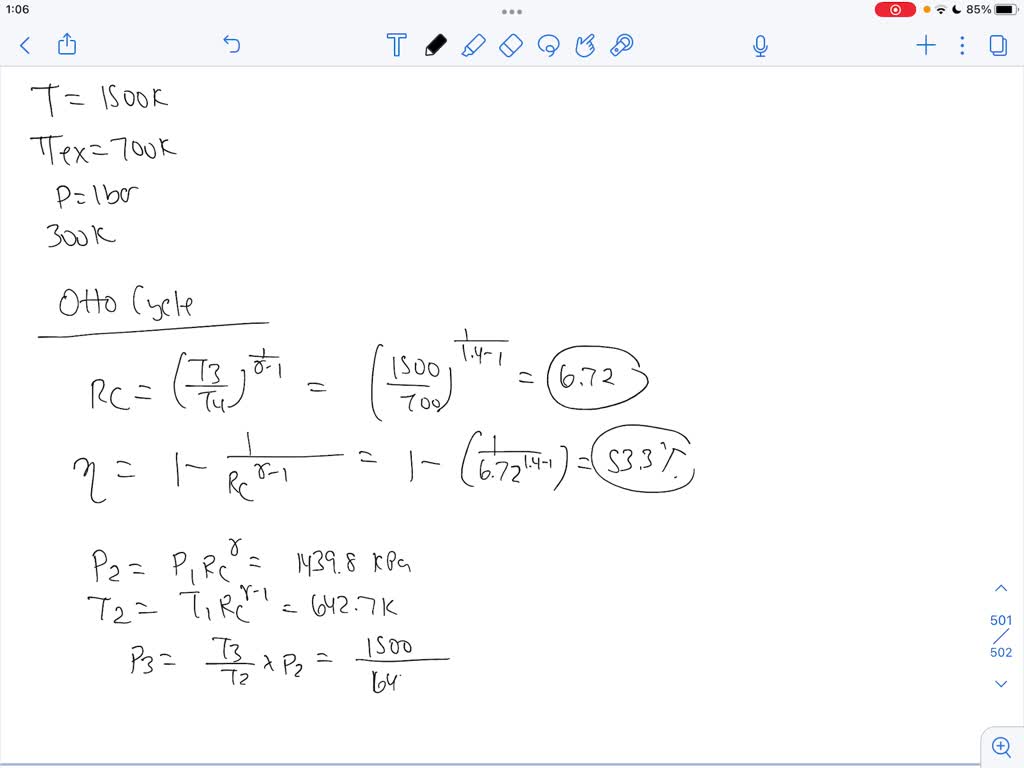 1:06
85%
T
T = 1500K
Tex = 700K
P = 1bar
300K
Otto Cycle
Rc = (T3/T4)^(1/(γ-1)) = (1500/700)^(1/(1.4-1)) = 6.72
η = 1 - 1/Rc^(γ-1) = 1 - (1/6.72^(1.4-1)) = 53.3%
P2 = P1Rc^γ = 1439.8 kPa
T2 = T1Rc^(γ-1) = 642.7K
P3 = T3/T2 x P2 = 1500/64
501
/
502